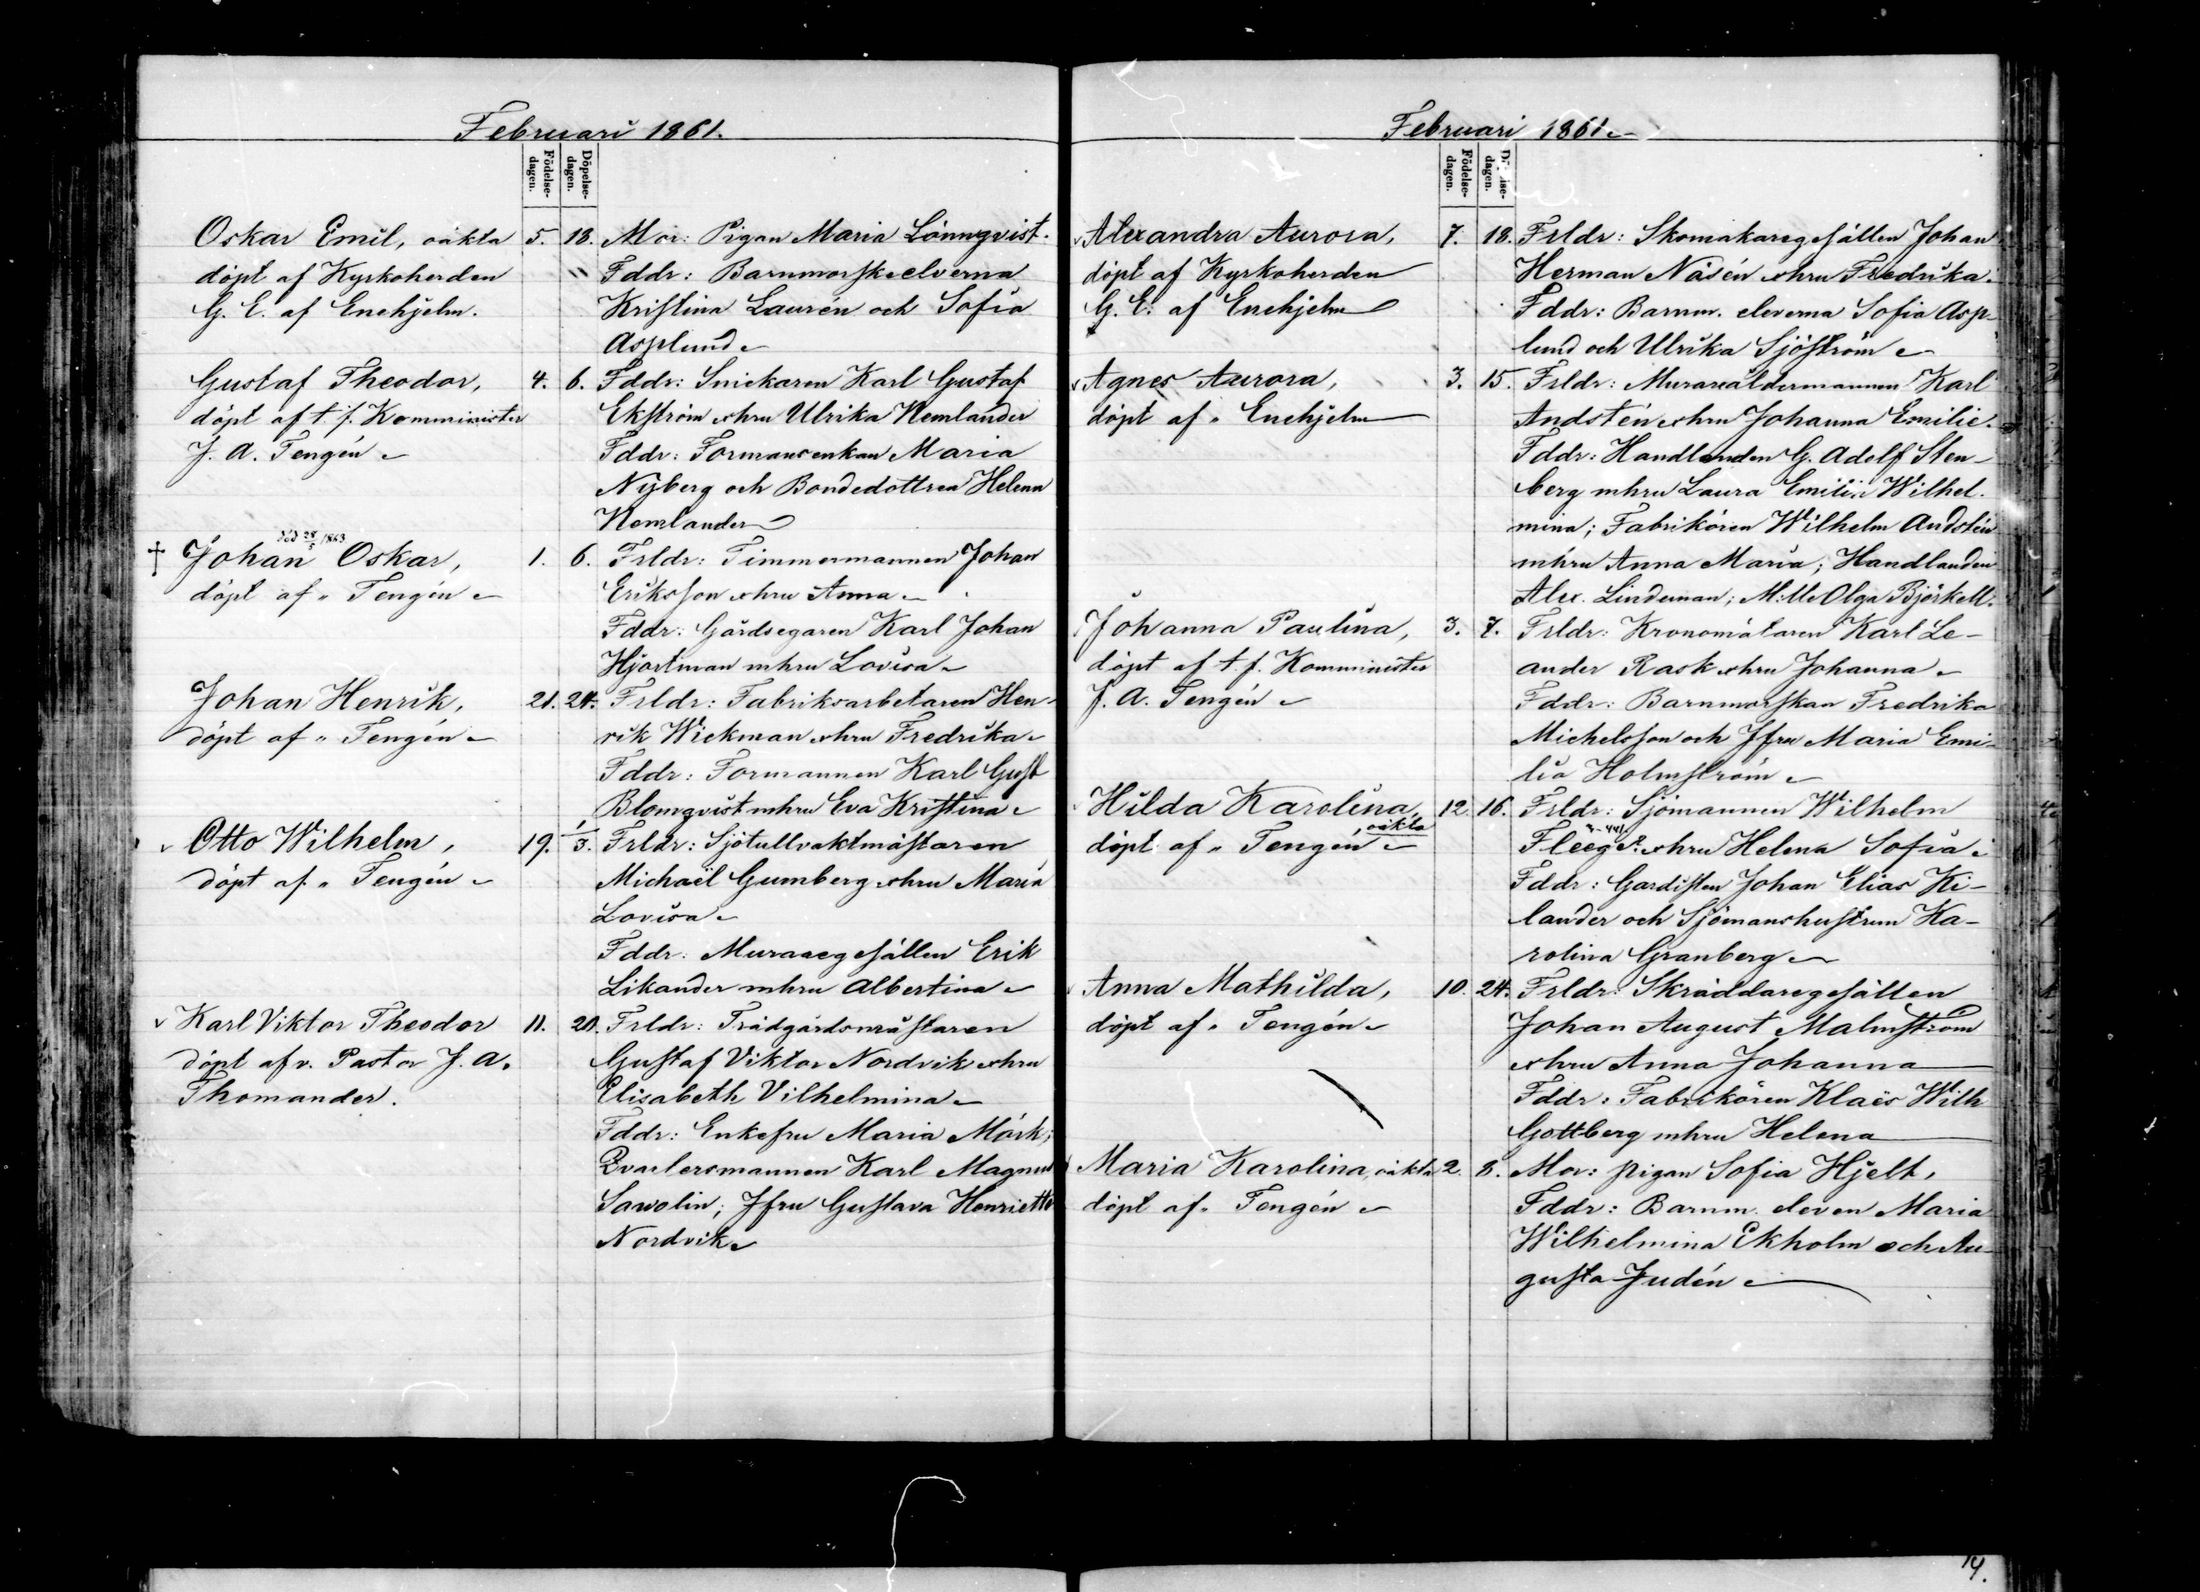 Februari 1861.
Födelse-
dagen.
Döpelse-
dagen.
Oskar Emil, oäkta
döpt af Kyrkoherden
G. E. af Enehjelm.
5.
18.
Mor: Pigan Maria Lönnqvist.
Fddr: Barnmorske elverna
Kristina Laurén och Sofia
Asplund
Gustaf Theodor,
döpt af t. f. Komminister
J. A. Tengén
4.
6.
Fddr: Snickaren Karl Gustaf
Ekström o hru Ulrika Nemlander
Fddr: Formansenkan Maria
Nyberg och Bondedottren Helena
Nemlander
död 28/5 1863
† Johan Oskar,
döpt af " Tengén
1.
6.
Frldr: Timmermannen Johan
Eriksson o hru Anna
Fddr: Gårdsegaren Karl Johan
Hjortman mhru Lovisa
Johan Henrik,
döpt af " Tengén
21.
24.
Frldr: Fabriksarbetaren Hen-
rik Wickman o hru Fredrika
Fddr: Formannen Karl Gust
Blomqvist mhru Eva Kristina
Otto Wilhelm,
döpt af " Tengén
19.
1/3.
Frldr: Sjötullvaktmästaren
Michaël Gumberg o hru Maria
Lovisa
Fddr: Muraregesällen Erik
Likander mhru Albertina
Karl Viktor Theodor
döpt af v. Pastor J. A.
Thomander.
11.
20.
Frldr: Trädgårdsmästaren
Gustaf Viktor Nordvik o hru
Elisabeth Vilhelmina
Fddr: Enkefru Maria Mörk;
Qvartersmannen Karl Magnus
Sawolin; Jfru Gustava Henrietta
Nordvik
Februari 1861
Födelse-
dagen.
Döpelse-
dagen.
Alexandra Aurora,
döpt af Kyrkoherden
G. E. af Enehjelm
7.
18.
Frldr: Skomakaregesällen Johan
Herman Näsén o hru Fredrika.
Fddr: Barnm. eleverna Sofia Asp-
lund och Ulrika Sjöström
Agnes Aurora,
döpt af " Enehjelm
3.
15.
Frldr: Murareåldermannen Karl
Andstén o hru Johanna Emilie.
Fddr: Handlanden G. Adolf Sten-
berg mhru Laura Emilia Wilhel-
mina; Fabrikören Wilhelm Andstén
mhru Anna Maria; Handlanden
Alex. Lindeman; M:lle Olga Björkell.
Johanna Paulina,
döpt af t. f. Komminister
J. A. Tengén
3.
7.
Frldr: Kronomätaren Karl Le-
ander Rask o hru Johanna
Fddr: Barnmorskan Fredrika
Michelsson och Jfru Maria Emi-
lia Holmström
Hilda Karolina,
oäkta
döpt af " Tengén
12.
16.
Frldr: Sjömannen Wilhelm
Fleege o hru Helena Sofia
Fddr: Gardisten Johan Elias Ki-
lander och Sjömanshustrun Ka-
rolina Granberg
Anna Mathilda,
döpt af " Tengén
10.
24.
Frldr: Skräddaregesällen
Johan August Malmström
o hru Anna Johanna
Fddr: Fabrikören Klaës Wilh
Gottberg mhru Helena
Maria Karolina, oäkta
döpt af " Tengén
2.
8.
Mor: pigan Sofia Hjelt,
Fddr: Barnm. eleven Maria
Wilhelmina Ekholm och Au-
gusta Judén
14.